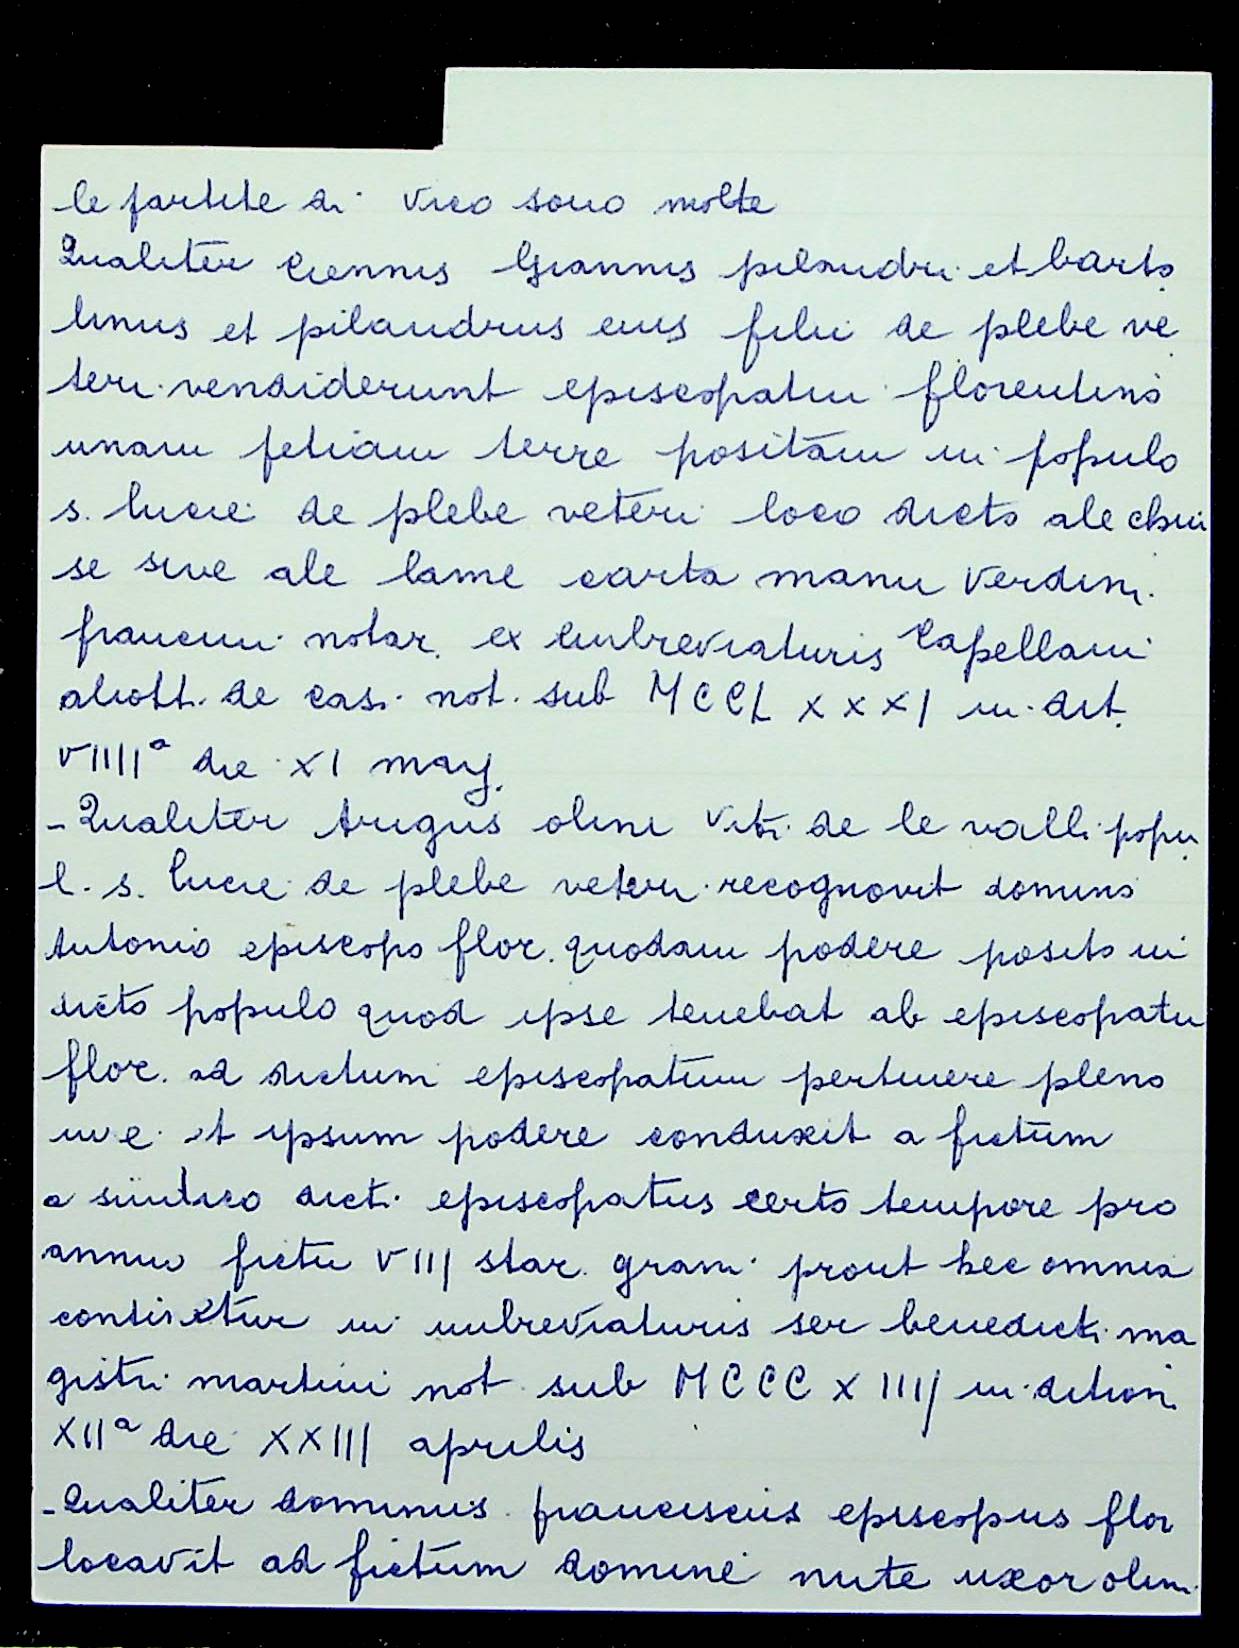 le partite di Vico sono molte
Qualiter Ciennis Giannis pilandri et barto
linus et pilandrus eius filii de plebe ve
teri vendiderunt episcopatui florentino
unam petiam terre positam in populo
s. lucie de plebe veteri loco dicto ale chiu
se sive ale lame carta manu Verdini
francini notar. ex imbreviaturis Capellani
aliotti de cas. not. sub MCCLXXXI in dit.
VIIIIª die XI may.
- Qualiter Arigus olim Viti de le valli popu
l. s. lucie de plebe veteri recognovit domino
Antonio episcopo flor. quodam podere posito in
dicto populo quod ipse tenebat ab episcopatu
flor. ad dictum episcopatum pertinere pleno
iure et ipsum podere conduxit a fictum
a sindico dicti episcopatus certo tempore pro
annuo fictu VIII star. grani prout hec omnia
continetur in imbreviaturis ser benedicti ma
gistri martini not. sub MCCCXIIII in dition.
XIIª die XXIII aprilis
- Qualiter dominus franciscus episcopus flor
locavit ad fictum domine nute uxor olim